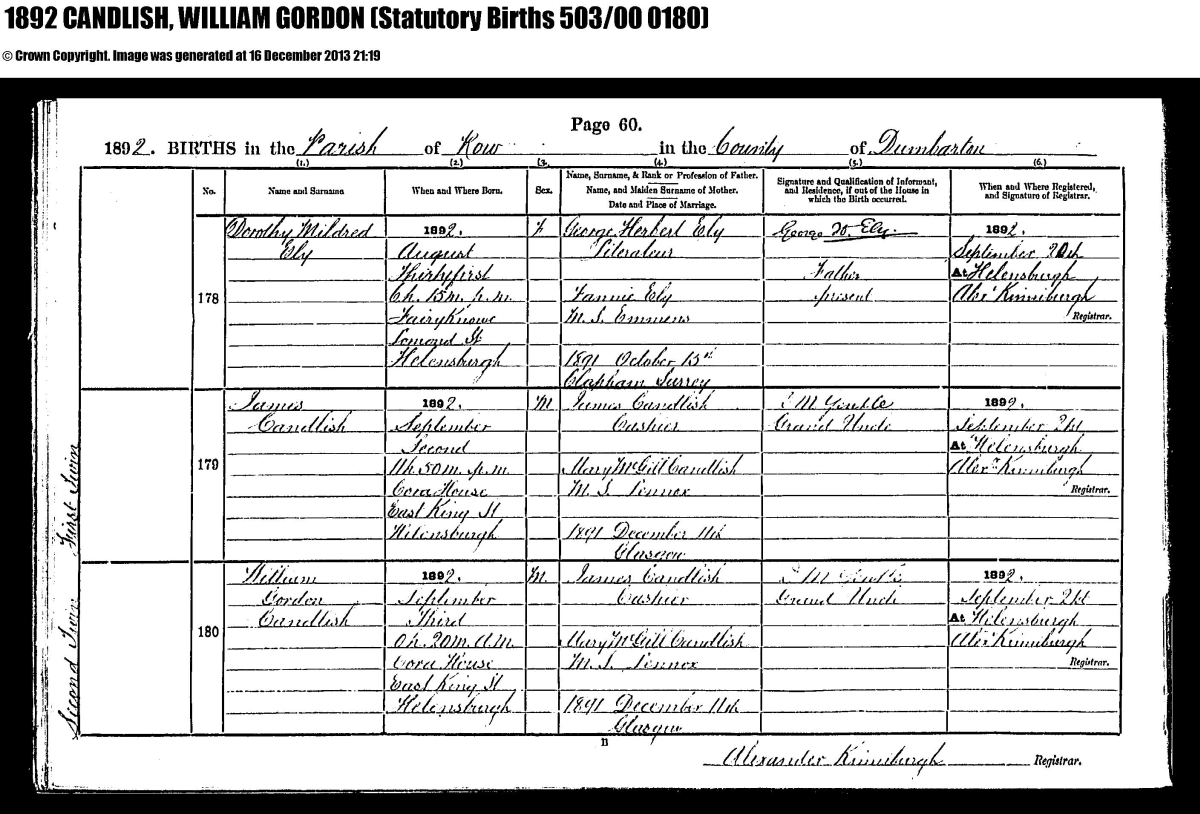 1892 CANDLISH, WILLIAM GORDON (Statutory Births 503/00 0180)
© Crown Copyright. Image was generated at 16 December 2013 21:19
Page 60.
1892. BIRTHS in the Parish of Row in the County of Dumbarton
(1.) (2.) (3. (4.) (5.) (6.)
No.
Name and Surname
When and Where Born.
Sex.
Name, Surname, & Rank or Profession of Father.
Name, and Maiden Surname of Mother.
Date and Place of Marriage.
Signature and Qualification of Informant,
and Residence, if out of the House in
which the Birth occurred.
When and Where Registered,
and Signature of Registrar.
178
Dorothy Mildred
Ely
1892.
August
Thirtyfirst
6h. 15m. p.m.
Fairy Knowe
Lomond St
Helensburgh
F
George Herbert Ely
Literateur
Fannie Ely
M. S. Emmens
1891 October 15th
Clapham Surrey
George H. Ely.
Father
present
1892.
September 20th
At Helensburgh
Alexr Kinniburgh
Registrar.
First Twin
179
James
Candlish
1892.
September
Second
11h 50m. p.m.
Cora House
East King St
Helensburgh
M
James Candlish
Cashier
Mary McGill Candlish
M. S. Lennox
1891 December 11th
Glasgow
Grand Uncle
1892.
September 21st
At Helensburgh
Alexr Kinniburgh
Registrar.
Second Twin
180
William
Gordon
Candlish
1892.
September
Third
0h. 20m. A.M.
Cora House
East King St
Helensburgh
M.
James Candlish
Cashier
Mary McGill Candlish
M. S. Lennox
1891 December 11th
Glasgow
Grand Uncle
1892.
September 21st
At Helensburgh
Alexr Kinniburgh
Registrar.
B
Alexander Kinniburgh Registrar.